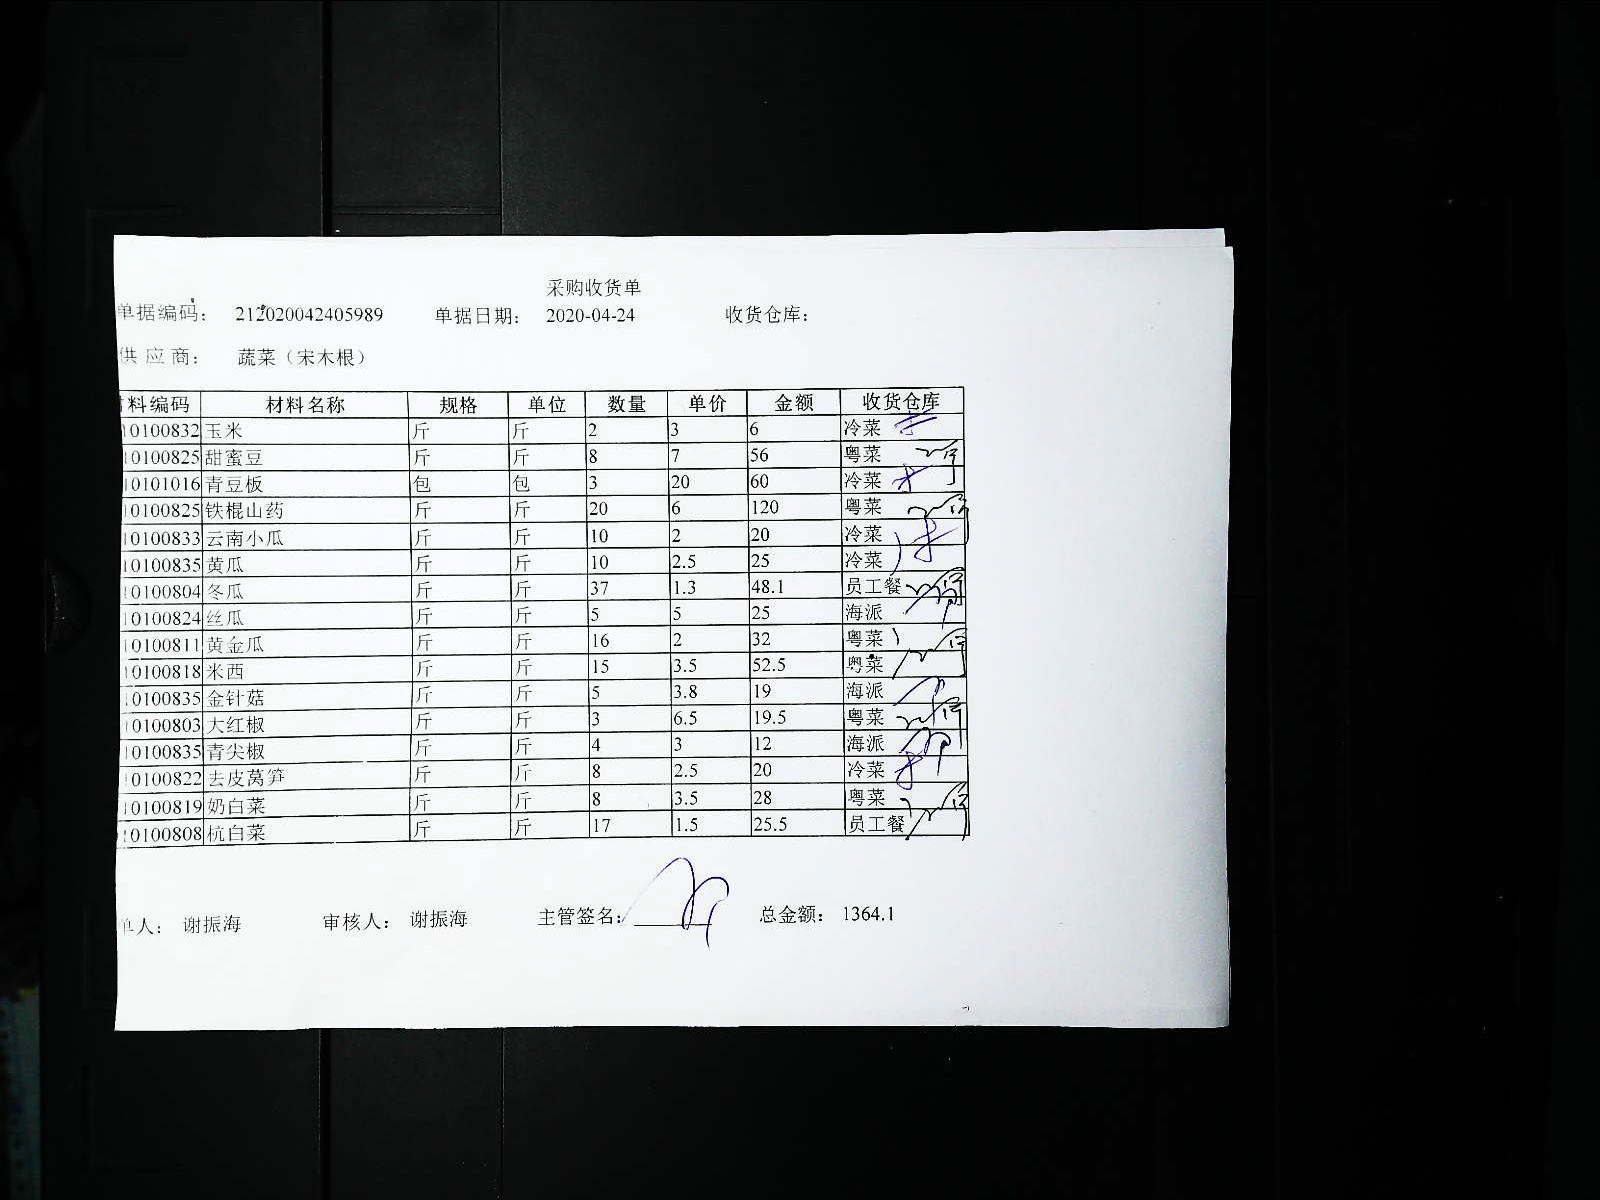 采购收货单
单据编码： 212020042405989 单据日期： 2020-04-24 收货仓库：
供 应 商： 蔬菜（宋木根）
料编码 材料名称 规格 单位 数量 单价 金额 收货仓库
10100832 玉米 斤 斤 2 3 6 冷菜
10100825 甜蜜豆 斤 斤 8 7 56 粤菜
10101016 青豆板 包 包 3 20 60 冷菜
10100825 铁棍山药 斤 斤 20 6 120 粤菜
10100833 云南小瓜 斤 斤 10 2 20 冷菜
10100835 黄瓜 斤 斤 10 2.5 25 冷菜
10100804 冬瓜 斤 斤 37 1.3 48.1 员工餐
10100824 丝瓜 斤 斤 5 5 25 海派
10100811 黄金瓜 斤 斤 16 2 32 粤菜
10100818 米西 斤 斤 15 3.5 52.5 粤菜
10100835 金针菇 斤 斤 5 3.8 19 海派
10100803 大红椒 斤 斤 3 6.5 19.5 粤菜
10100835 青尖椒 斤 斤 4 3 12 海派
10100822 去皮莴笋 斤 斤 8 2.5 20 冷菜
10100819 奶白菜 斤 斤 8 3.5 28 粤菜
10100808 杭白菜 斤 斤 17 1.5 25.5 员工餐
单人： 谢振海 审核人： 谢振海 主管签名： 总金额： 1364.1